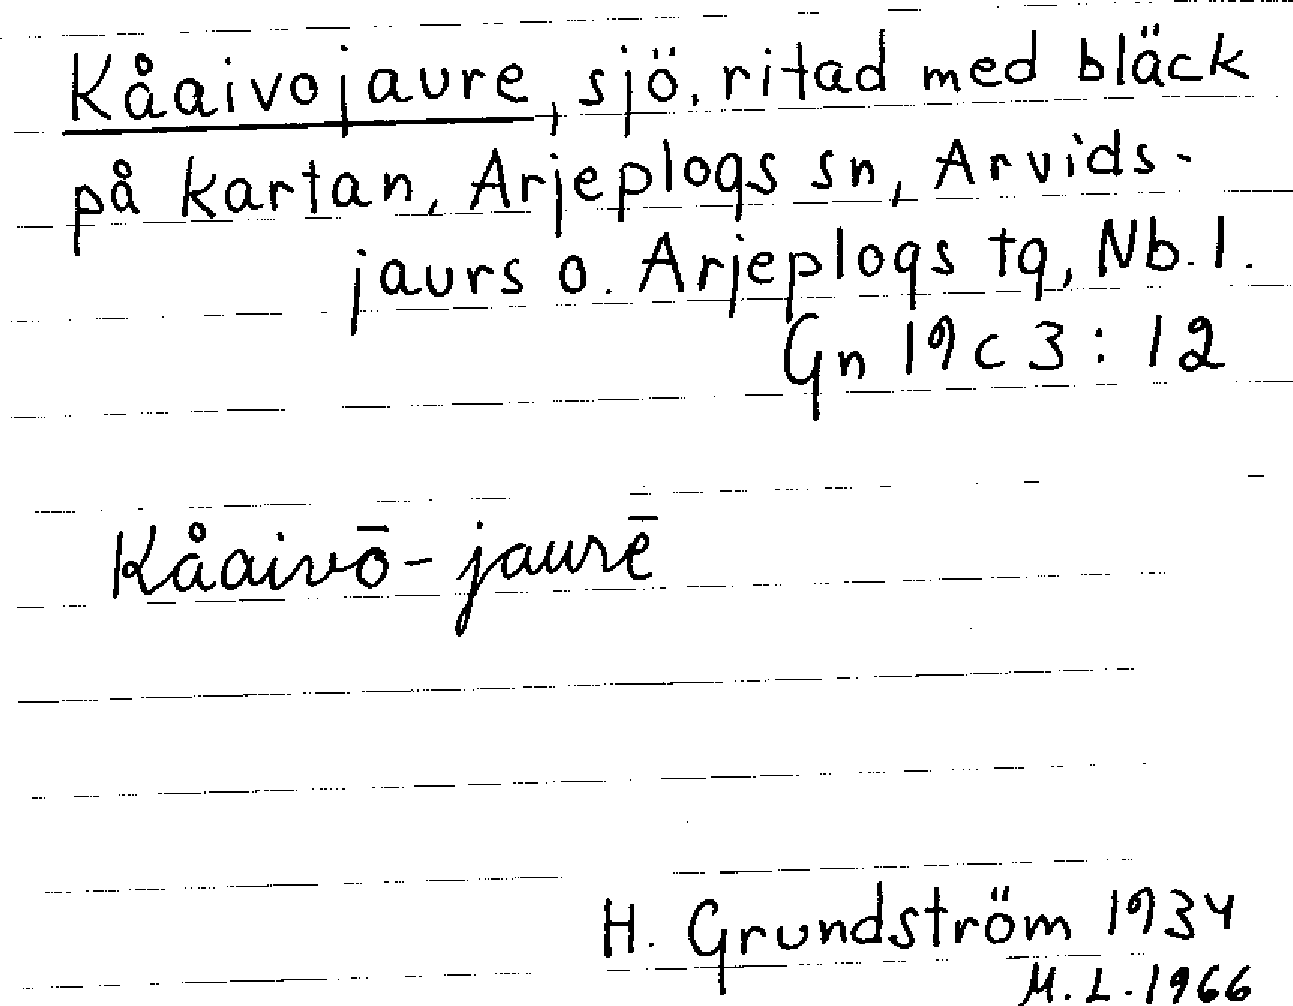 Kåaivojaure, sjö, ritad med bläck
på kartan, Arjeplogs sn, Arvids-
jaurs o. Arjeplogs tg, Nb. l.
Gn 19c3:12
Kåaivō-jaurē
H. Grundström 1934
M.L. 1966